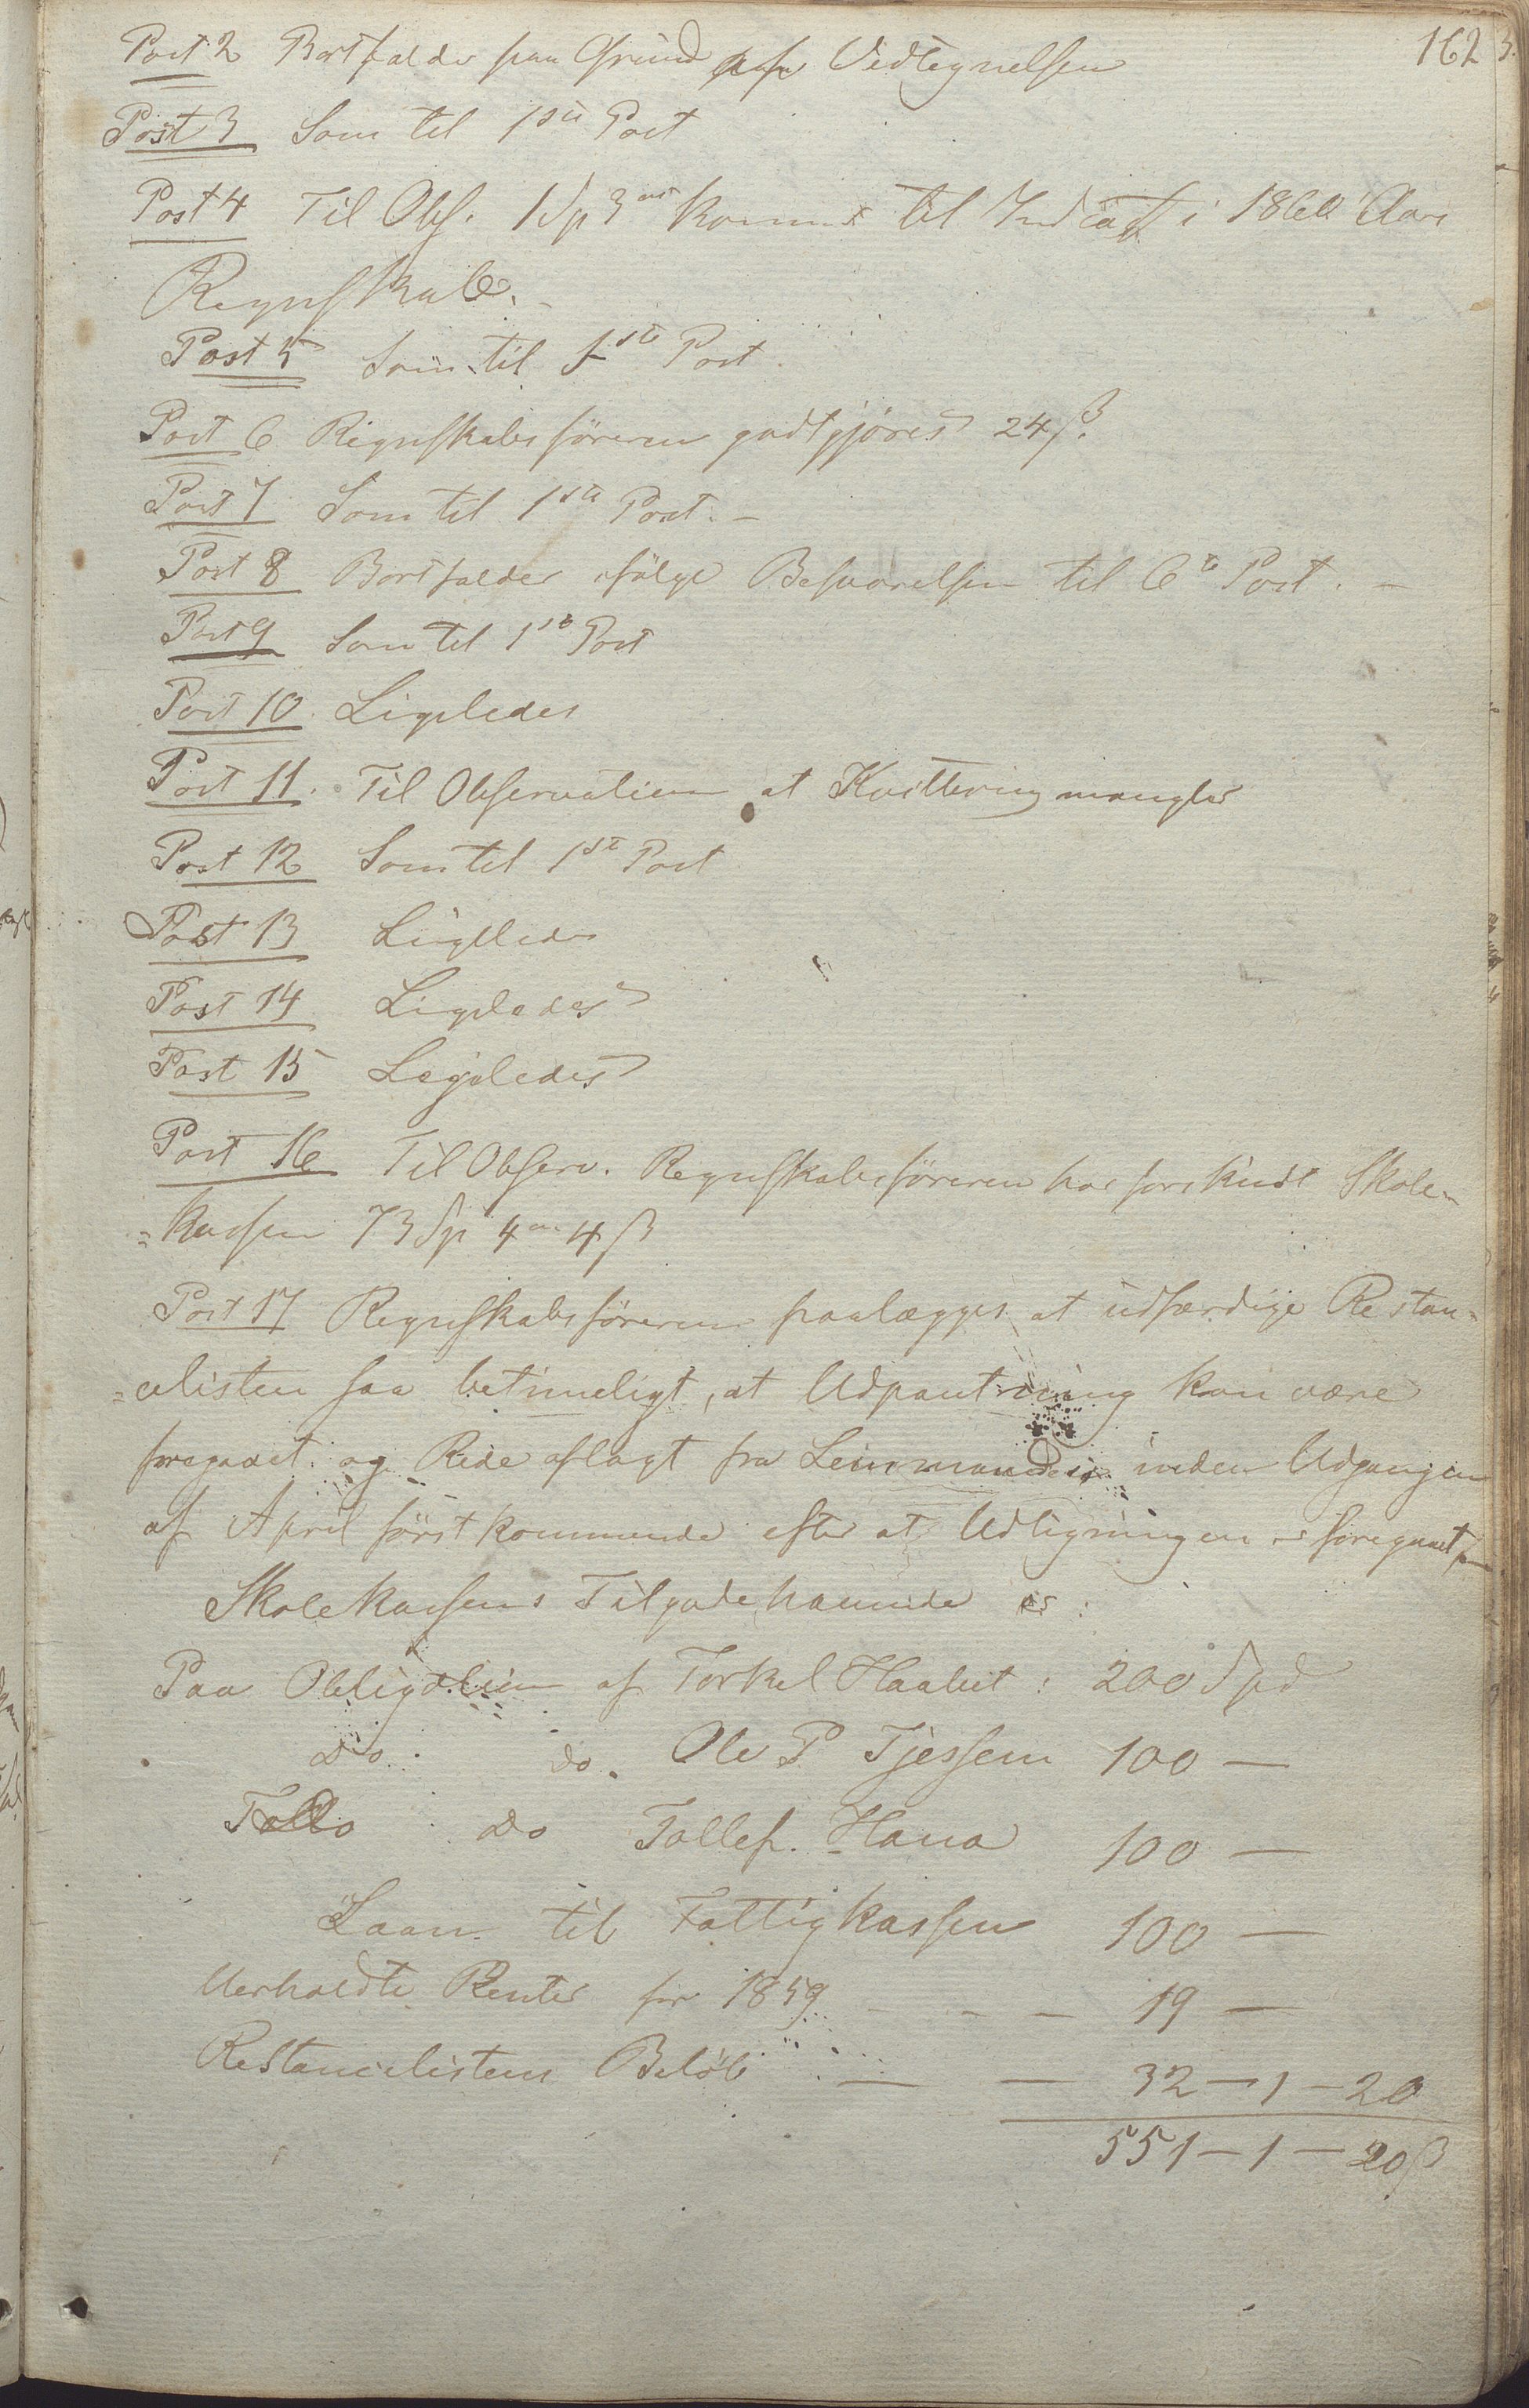 162
Post 2 Bortfalder paa Grund af Vedtegnelsen
Post 3 Som til 1ste Post
Post 4 Til Obs. 1 Sp 3 ort kommer til Indtægt i 1860 Aars
Regnskab.
Post 5 Som til 1ste Post.
Post 6 Regnskabsføreren godtgjøres 24 ß.
Post 7 Som til 1ste Post. –
Post 8 Bortfalder ifølge Besvarelsen til 6te Post. –
Post 9 Som til 1ste Post
Post 10. Ligeledes
Post 11. Til Observation at Kvittering mangler
Post 12 Som til 1ste Post
Post 13 Ligeledes
Post 14 Ligeledes
Post 15 Ligeledes
Post 16 Til Observ. Regnskabsføreren har forskudt Skole-
=kassen 73 Sp 4 ort 4 ß
Post 17 Regnskabsføreren paalægges at udfærdige Restan-
=celisten saa betimeligt, at Udpantning kan være
foregaaet og Rede aflagt fra Lensmanden inden Udgangen
af April førstkommende efter at Udligningen er foregaaet
Skolekassens Tilgodehavende er:
Paa Obligation af Torkel Haabet: 200 Spd
do. do. Ole P Tjessem 100 –
do do Tollef. Hana 100 –
Laan til Fattigkassen 100 –
Uerholdte Renter for 1859 – – – 19 –
Restancelistens Beløb – – 32 – 1 – 20
551 – 1 – 20 ß